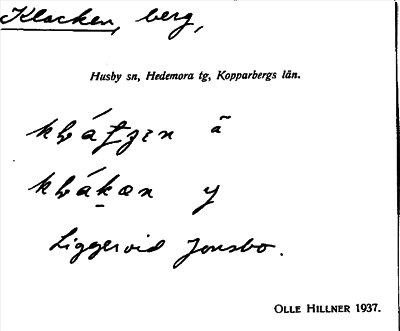 Klacken, berg,
Husby sn, Hedemora tg, Kopparbergs län.
ä
y
Liggervid Jonsbo.
OLLE HILLNER 1937.